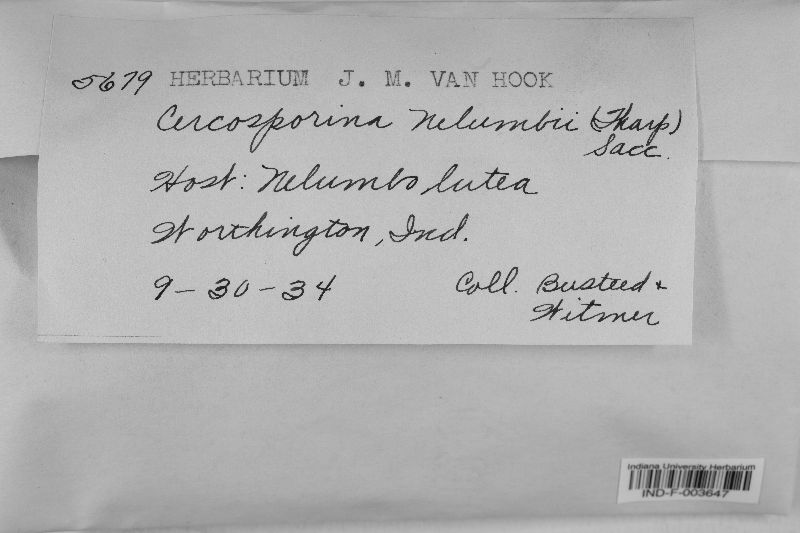 5679 HERBARIUM J. M. VAN HOOK
Cercosporina Nelumbii (Tharp)
Sacc.
Host: Nelumbo lutea
Worthington, Ind.
9-30-34 Coll. Busteed +
Witmer
Indiana University Herbarium
IND-F-003647